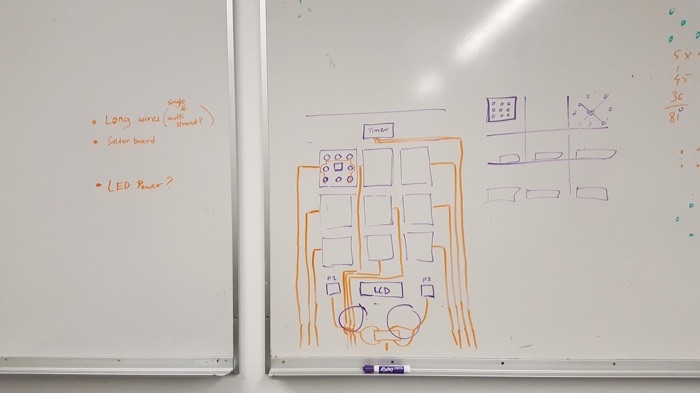 • Long wires (single & multi strand?)
• Solder board
• LED Power?
Timer
P1
LCD
P2
5 x
45
36
81
EXPO